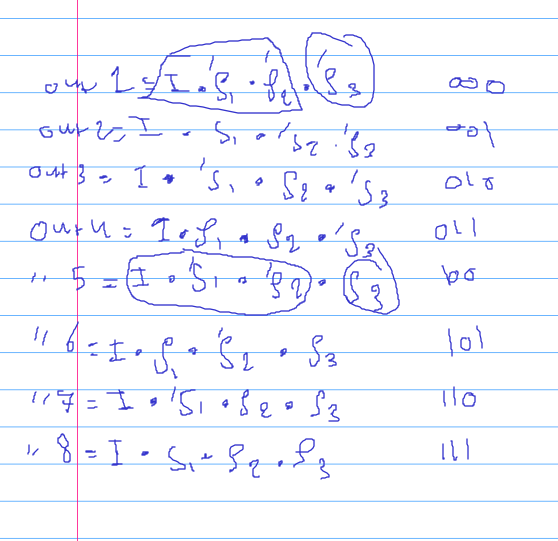 out 1 = I . 'S1 . 'S2 . 'S3 000
out 2 = I . S1 . 'S2 . 'S3 001
out 3 = I . 'S1 . S2 . 'S3 010
out 4 = I . S1 . S2 . 'S3 011
" 5 = I . 'S1 . 'S2 . S3 100
" 6 = I . S1 . 'S2 . S3 101
" 7 = I . 'S1 . S2 . S3 110
" 8 = I . S1 . S2 . S3 111